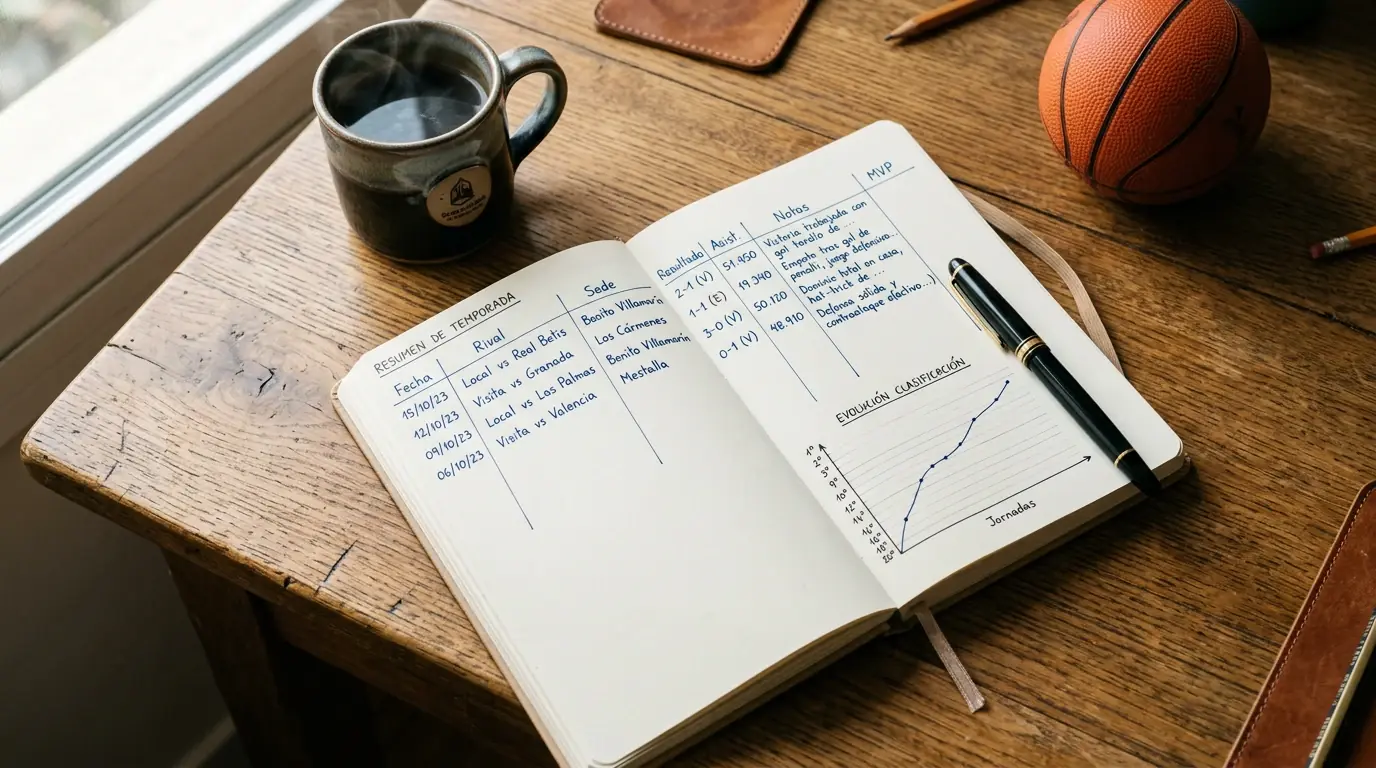 RESUMEN DE TEMPORADA
Fecha Rival Sede
15/10/23 Local vs Real Betis Benito Villamarín
12/10/23 Visita vs Granada Los Cármenes
09/10/23 Local vs Las Palmas Benito Villamarín
06/10/23 Visita vs Valencia Mestalla
Resultado Asist. Notas MVP
2-1 (V) 51.950 Victoria trabajada con
gol tardío de ...
1-1 (E) 19.340 Empate tras gol de
penalti, juego defensivo...
3-0 (V) 50.120 Dominio total en casa,
hat-trick de ...
0-1 (V) 48.910 Defensa sólida y
contraataque efectivo...)
EVOLUCIÓN CLASIFICACIÓN
1º
2º
3º
9º
10º
12º
14º
16º
16º
18º
20º
Jornadas